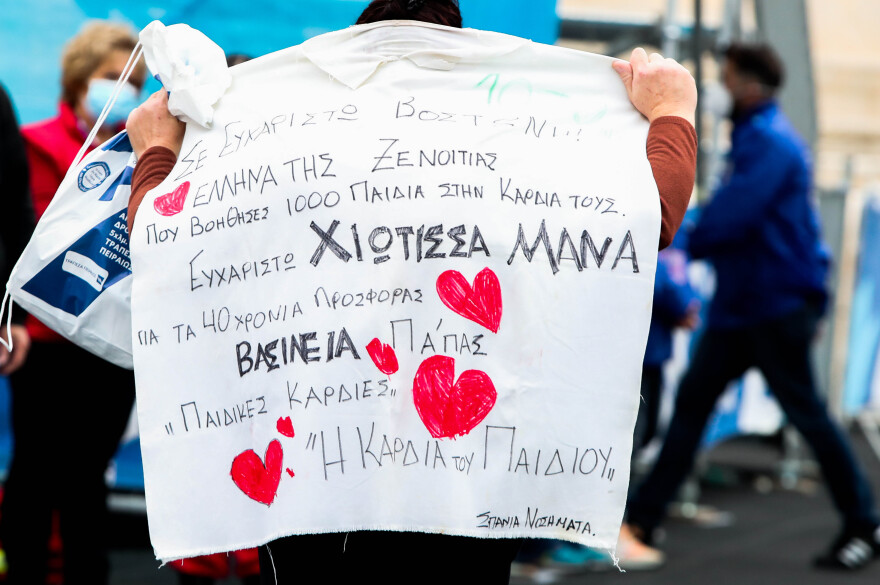 ΣΕ ΕΥΧΑΡΙΣΤΩ ΒΟΣΤΩΝΗ!!
ΕΛΛΗΝΑ ΤΗΣ ΞΕΝΟΙΤΙΑΣ
ΠΟΥ ΒΟΗΘΗΣΕΣ 1000 ΠΑΙΔΙΑ ΣΤΗΝ ΚΑΡΔΙΑ ΤΟΥΣ.
ΕΥΧΑΡΙΣΤΩ ΧΙΩΤΙΣΣΑ ΜΑΝΑ
ΓΙΑ ΤΑ 40 ΧΡΟΝΙΑ ΠΡΟΣΦΟΡΑΣ
ΒΑΣΙΛΕΙΑ ΠΑ'ΠΑΣ
„ΠΑΙΔΙΚΕΣ ΚΑΡΔΙΕΣ„
"Η ΚΑΡΔΙΑ ΤΟΥ ΠΑΙΔΙΟΥ„
ΣΠΑΝΙΑ ΝΟΣΗΜΑΤΑ.
ΤΡΑΠΕΖ
ΠΕΙΡΑΙΩΣ